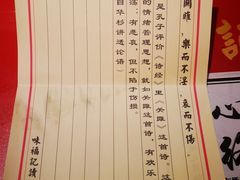 關雎，樂而不淫，哀而不傷。
是孔子评价《诗经》里《关雎》这首诗。这
的情绪管理思想，就如关雎这首诗，有欢乐
荡；有悲哀，但不陷于伤损。
自华杉讲透论语）
味福記讀